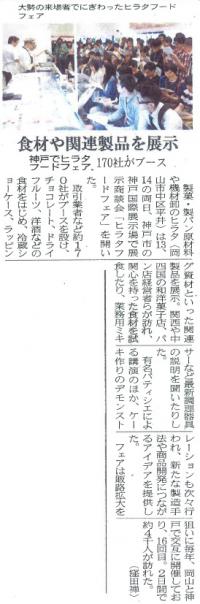 大勢の来場者でにぎわったヒラタフード
フェア
食材や関連製品を展示
神戸でヒラタ
フードフェア
170社がブース
製菓・製パン原材料
や機材卸のヒラタ(岡
山市中区平井)は13、
14の両日、神戸市の
神戸国際展示場で展
示商談会「ヒラタフ
ードフェア」を開い
た。
取引業者など約17
0社がブースを設け、
チョコレート、ドライ
フルーツ、洋酒などの
食材をはじめ、冷蔵シ
ョーケース、ラッピン
グ資材といった関連
製品を展示。関西や中
四国の和洋菓子店、パ
ン店経営者らが訪れ、
関心を持った食材を試
食したり、業務用ミキ
サーなど最新調理器具
の説明を聞いたりし
た。
有名パティシエによ
る講演のほか、ケー
キ作りのデモンスト
レーションも次々行
われ、新たな製造手
法や商品開発につなが
るアイデアを提供し
た。
フェアは販路拡大を
狙いに毎年、岡山と神
戸で交互に開催してお
り、16回目。2日間で
約4千人が訪れた。
(窪田禅)